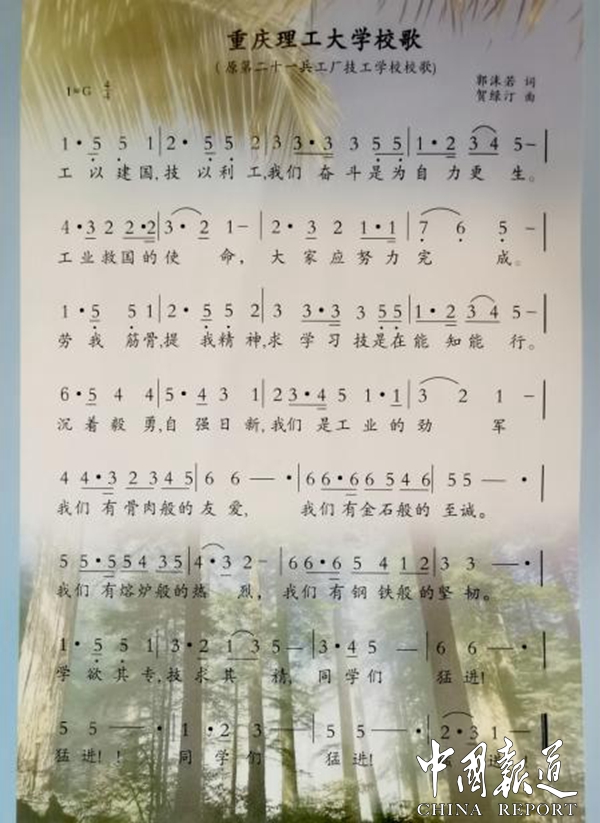 重庆理工大学校歌
(原第二十一兵工厂技工学校校歌)
1=G 4/4
郭沫若 词
贺绿汀 曲
1· 5 5 1|2· 5 5 2|3 3·3 3 5 5|1·2 3 4 5-|
工 以 建 国,技 以 利 工,我们 奋 斗是为 自 力 更 生。
4·3 2 2·2|3· 2 1-|2· 3 2 1·1|7 6 5 -|
工业 救国的使 命, 大 家 应努力 完 成。
1· 5 5 1|2· 5 5 2|3 3·3 3 5 5|1·2 3 4 5-|
劳 我 筋骨,提 我 精 神,求 学 习 技是在 能 知 能 行。
6· 5 4 4|5· 4 3 1|2 3·4 5 1·1|3 2 1 -|
沉 着 毅 勇,自 强 日 新,我们 是工业 的 劲 军
4 4·3 2 3 4 5|6 6 — ·|6 6·6 6 5 4 6|5 5 — ·|
我们 有骨肉般的 友 爱, 我们 有金石般的 至诚。
5 5·5 5 4 3 5|4·3 2 —|6 6·6 5 4 1 2|3 — ·|
我们 有熔炉般的热 烈, 我们 有钢铁般的坚 韧。
1· 5 5 1|3· 2 1 3|3·4 5 —|6 6 — ·|
学 欲 其 专,技 求 其 精, 同 学 们 猛 进!
5 5 — ·|1 ·2 3 — — · 2·3 1 — ·
猛 进! ! 同 学 们 猛 进! 进!
中國報道
CHINA REPORT